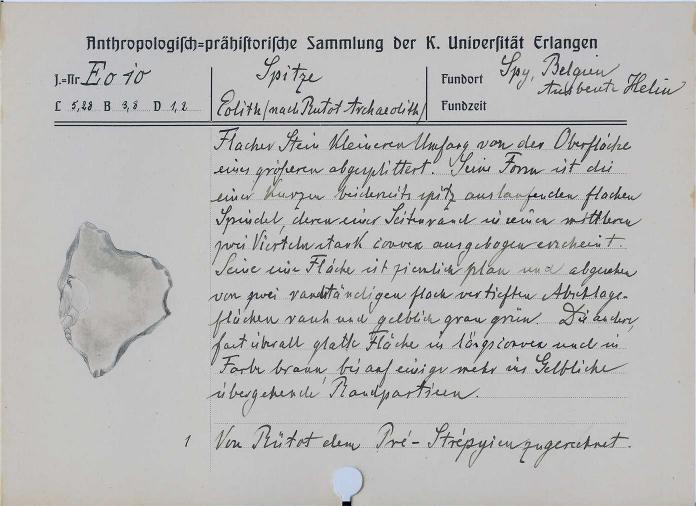 Anthropologisch=prähistorische Sammlung der K. Universität Erlangen
J.=Nr Eo 10
L 5,28 B 3,8 D 1,2
Spitze
Eolith (nach Rutot Archaeolith)
Fundort Spy, Belgien
Ausbeute Helin
Fundzeit
Flacher Stein kleineren Umfang von der Oberfläche
eines größeren abgesplittert. Seine Form ist die
einer kurzen beiderseits spitz auslaufenden flachen
Spindel, deren einer Seitenrand in seinen mittleren
zwei Vierteln stark convex ausgebogen erscheint.
Seine eine Fläche ist ziemlich plan und abgesehen
von zwei randständigen flach vertieften Abschlags-
flächen rauh und gelblich grau grün. Die andere,
fast überall glatte Fläche ist längsconvex und in
Farbe braun, bis auf einige mehr ins Gelbliche
übergehende Randpartieen.
1 Von Rütot dem Pré-Strépyien zugerechnet.